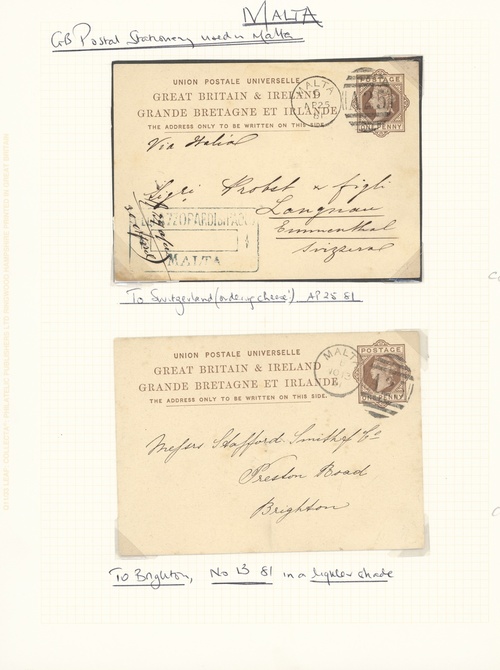 MALTA
GB Postal Stationery used in Malta
UNION POSTALE UNIVERSELLE
GREAT BRITAIN & IRELAND
GRANDE BRETAGNE ET IRLANDE
THE ADDRESS ONLY TO BE WRITTEN ON THIS SIDE.
MALTA
AP 25
81
A25
POSTAGE
ONE PENNY
Via Italia
Sigri Probst & figli
Langnau
Emmenthal
Svizzera
MALTA
To Switzerland (ordering cheese!) AP 25 81
UNION POSTALE UNIVERSELLE
GREAT BRITAIN & IRELAND
GRANDE BRETAGNE ET IRLANDE
THE ADDRESS ONLY TO BE WRITTEN ON THIS SIDE.
MALTA
POSTAGE
ONE PENNY
Messrs Stafford Smith & Co
Preston Road
Brighton
To Brighton, No 13 81 in a lighter shade